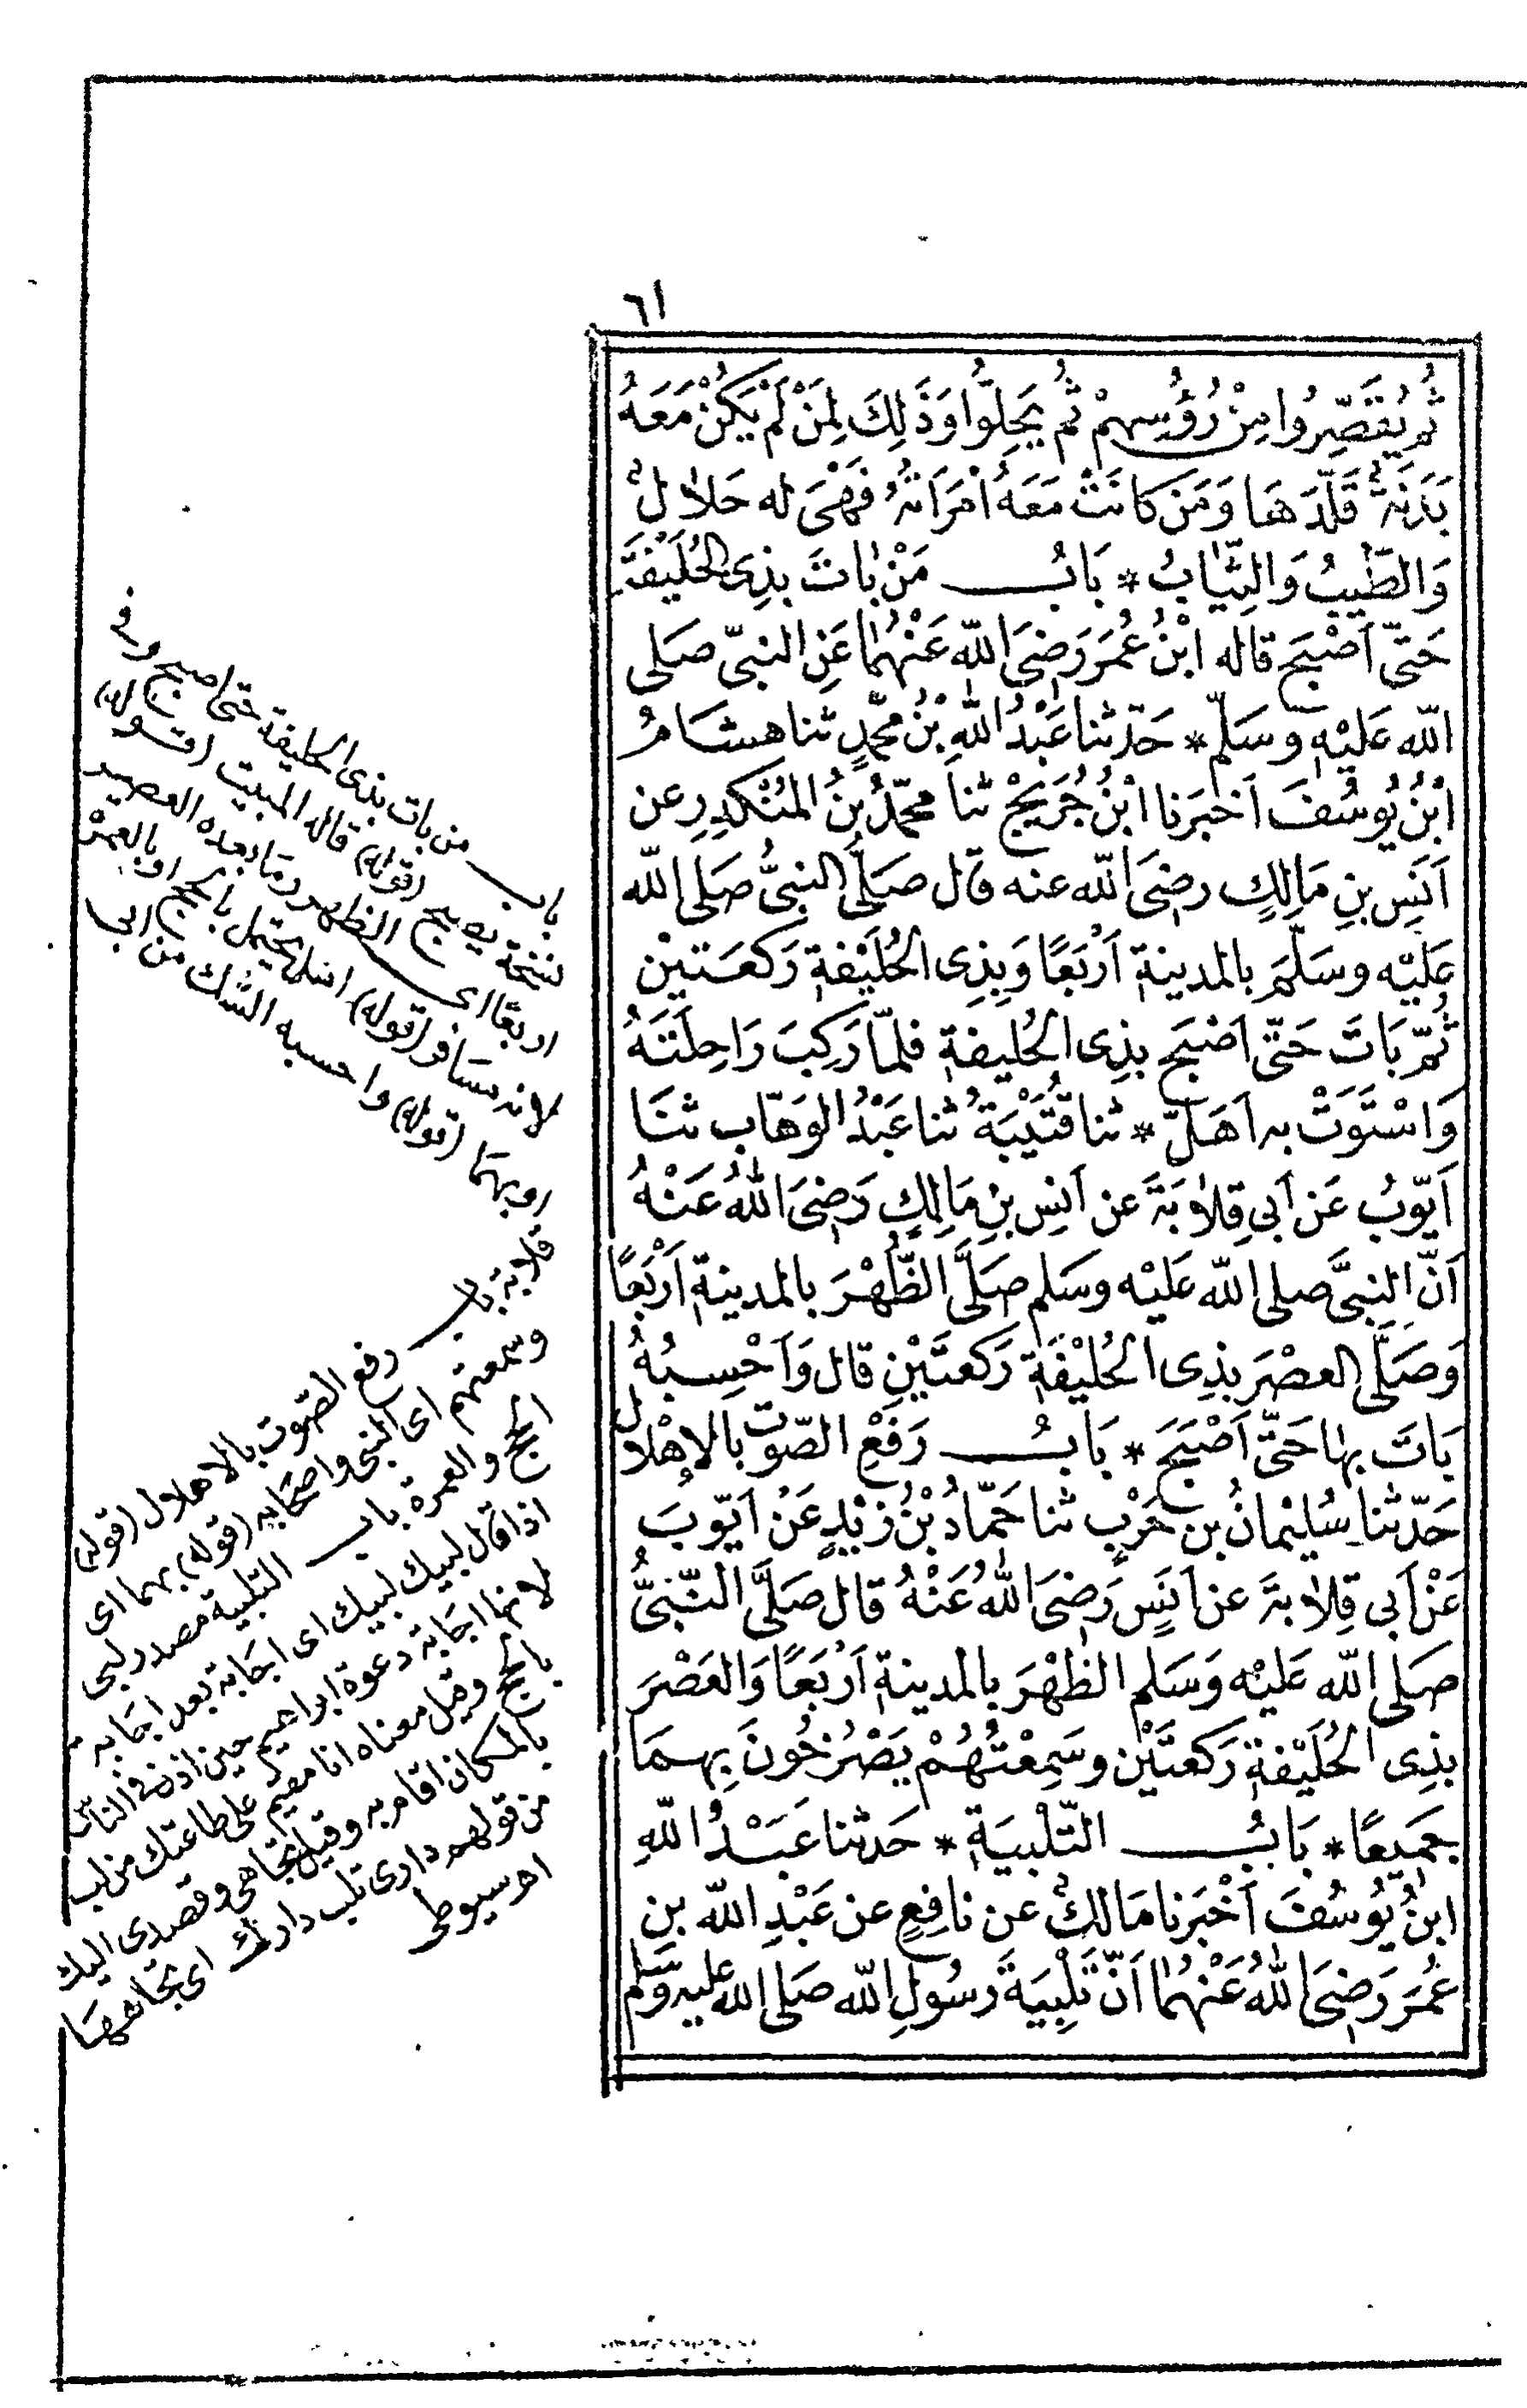 ٦١
ثُمّ يُقَصِّرُوا مِنْ رُؤُسِهِمْ ثُمّ يَحِلُّوا وَذَلِكَ لِمَنْ لَمْ يَكُنْ مَعَهُ
بَدَنَةٌ قَلَّدَهَا وَمَن كانَتْ مَعَهُ امْرَأَتُهُ فَهْىَ له حَلَالٌ
وَالطِّيبُ وَالثِّيَابُ * بَابُ مَنْ بَاتَ بِذِى الحُلَيْفَةِ
حَتّى أصْبَحَ قاله ابْنُ عُمَرَ رَضِىَ اللّه عَنْهُمَا عَنِ النبىّ صَلى
اللّه عَلَيْهِ وسَلّم * حَدّثنا عَبْدُ اللّهِ بْنُ محمّدٍ ثنا هشامُ
ابْنُ يُوسُفَ أخْبَرنا ابْنُ جُرَيْجٍ ثنا محمّدُ بنُ المُنْكَدِرِ عن
أنَسِ بنِ مَالِكٍ رضِىَ اللّه عنه قال صَلَّى النبىُّ صَلى اللّه
عَلَيْه وسَلّمَ بالمدينةِ أرْبَعًا وَبِذِى الحُلَيْفةِ رَكعَتيْنِ
ثُمّ بَاتَ حَتّى أصْبَحَ بذِى الحُليفةِ فلمّا رَكِبَ رَاحِلَتَهُ
وَاسْتَوَتْ به أهَلّ * ثنا قُتَيْبَةُ ثنا عَبْدُ الوَهّاب ثنَا
أيّوبُ عَن أبى قِلَابَةَ عن أنَسِ بنِ مَالِكٍ رَضِىَ اللّهُ عَنْهُ
أنّ النبىَّ صلى اللّه عَليْه وسَلم صَلَّى الظُّهْرَ بالمدينةِ أرْبَعًا
وَصَلَّى العصْرَ بذِى الحُليْفَةِ رَكعتَيْنِ قال وَأحْسِبُهُ
بَاتَ بِهَا حَتّى أصْبَحَ * بَابُ رَفْعِ الصّوْتِ بالإهْلال
حَدّثنا سُليْمانُ بن حَرْبٍ ثنا حَمّادُ بْنُ زَيْدٍ عَنْ أيّوبَ
عَنْ أبى قِلَابةَ عن أنَسٍ رَضِىَ اللّهُ عَنْهُ قال صَلَّى النّبىُّ
صَلى اللّه عَليْه وَسَلم الظهْرَ بالمدينةِ أرْبَعًا وَالعَصْرَ
بذِى الحُلَيْفةِ رَكعتَيْن وسَمِعْتُهُمْ يَصْرُخُونَ بِهمَا
جمَيعًا * بَابُ التّلْبيَةِ * حَدثنا عَبْدُ اللّهِ
ابنُ يُوسُفَ أخْبَرنا مَالكٌ عن نافِعٍ عن عَبْدِ اللّه بن
عُمَرَ رَضِىَ اللّهُ عَنْهُمَا أنّ تَلْبِيَةَ رسُولِ اللّه صَلى اللّه عليه وَسَلم
باب من بات بذى الحليفة حتى اصبح وفى
نسخة يصبح (قوله) قاله المبيت (قوله)
اربعا اى الظهر وما بعده العصر
لانه مسافر (قوله) اهل يحتمل بالحج او بالعمرة
او بهما (قوله) واحسبه الشك من ابى
قلابة باب رفع الصوت بالاهلال (قوله)
وسمعتهم اى النبى واصحابه (قوله) بهما اى
الحج والعمرة باب التلبية مصدر لبى
اذا قال لبيك لبيك اى اجابة بعد اجابة
لانها اجابة دعوة ابراهيم حين اذن فى الناس
بالحج وقيل معناه انا مقيم على طاعتك من لب
بالمكان اقام به وقيل تجاهى وقصدى اليك
من قولهم دارى تلب دارك اى تجاهها
اهر سيوطى